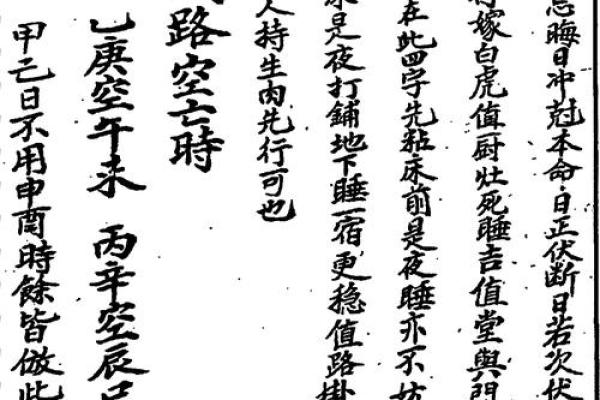 晦日冲尅本命日正伏断日若次伏
嫁白虎值厨灶死睡吉值堂與門
在此四字先粘床前是夜睡亦不妨
是夜打鋪地下睡一宿更稳值路掛
人持生肉先行可也
路空亡時
乙庚空午未 丙辛空辰巳
甲乙日不用申酉時餘皆倣此